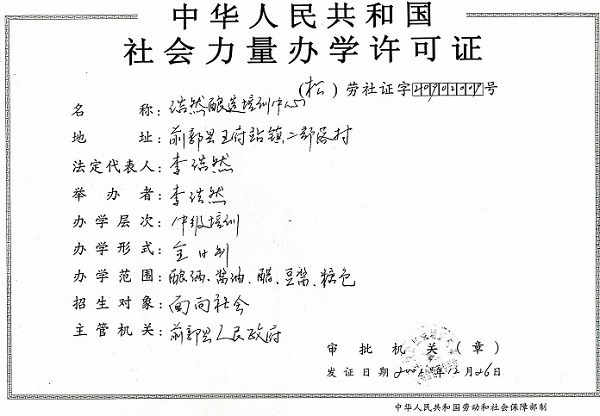 中华人民共和国
社会力量办学许可证
(松)劳社证字 号
名称：浩然酿造培训中心
地址：前郭县王府站镇二部落村
法定代表人：李浩然
举办者：李浩然
办学层次：中级培训
办学形式：全日制
办学范围：酿酒、酱油、醋、豆酱、粮包
招生对象：面向社会
主管机关：前郭县人民政府
审批机关(章)
发证日期 12月26日
中华人民共和国劳动和社会保障部制